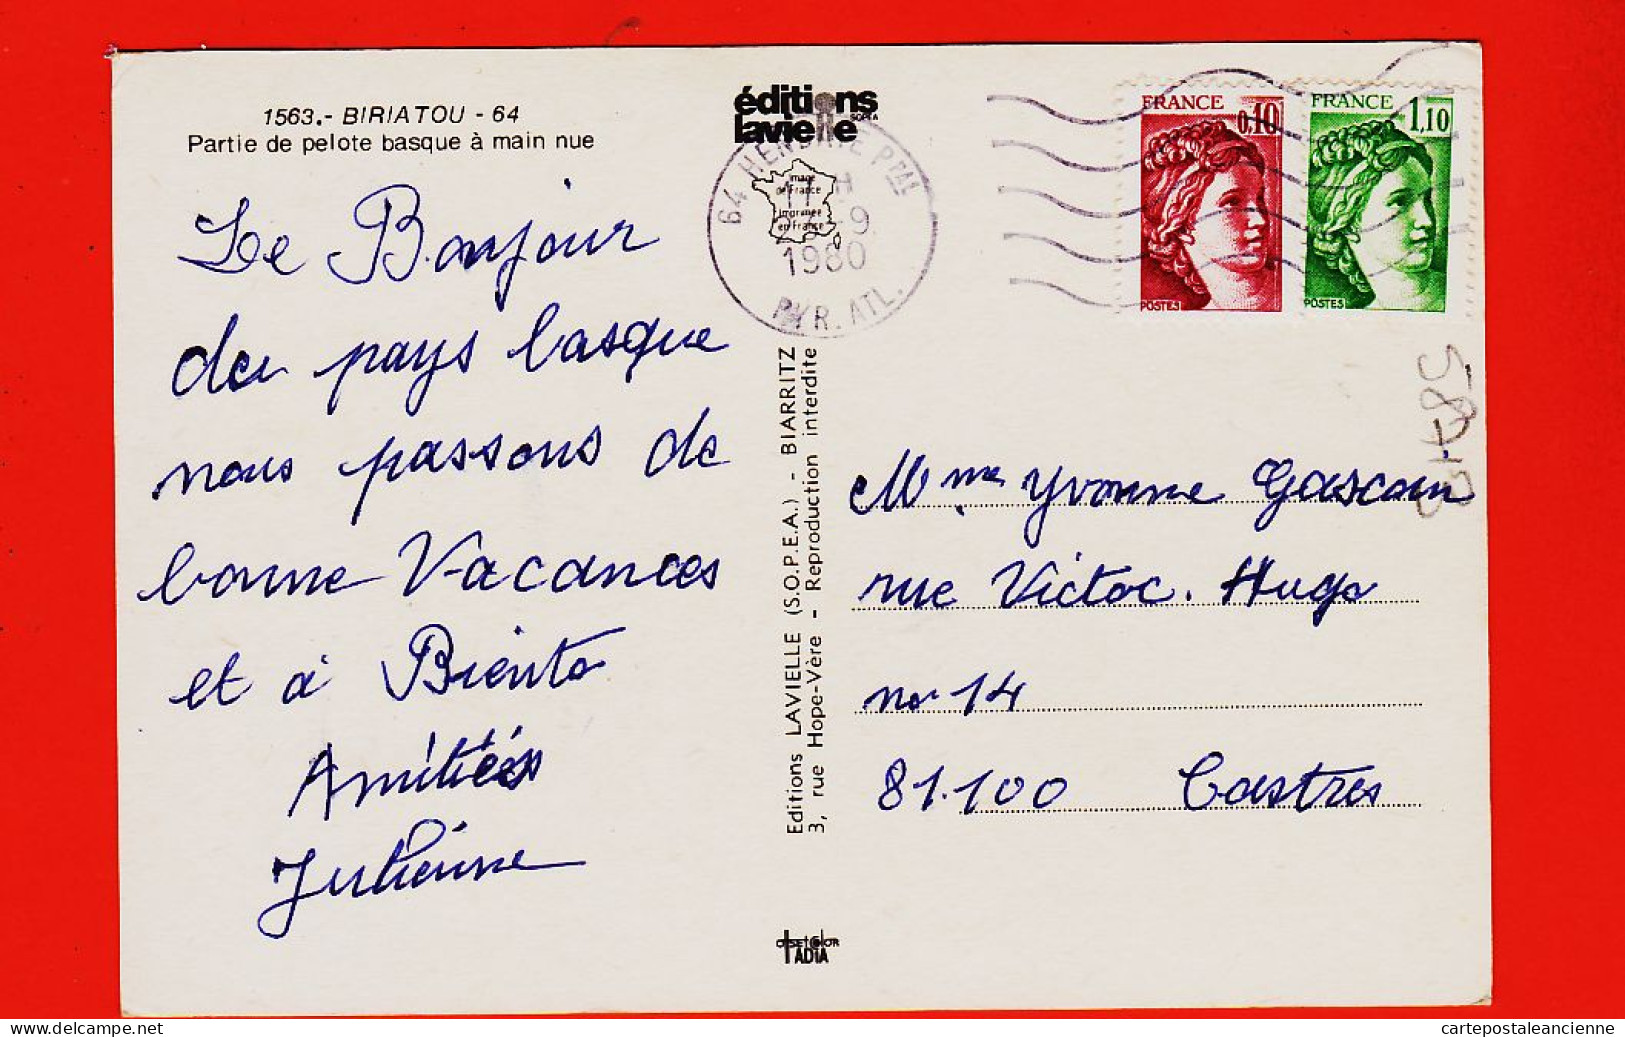 1563.- BIRIATOU - 64
Partie de pelote basque à main nue
Le Bonjour
du pays basque
nous passons de
bonne Vacances
et à Biento
Amitiés
Julienne
éditions
lavielle
SOPEA
Image
de France
Imprimée
en France
64 HENDAYE Ppal
11 H
-9
1980
PYR. ATL.
FRANCE
0,10
POSTES
FRANCE
1,10
POSTES
Editions LAVIELLE (S.O.P.E.A.) - BIARRITZ
3, rue Hope-Vère - Reproduction interdite
Mme Yvonne Gascon
rue Victor. Hugo
no 14
81.100 Castres
OFFSET COLOR
IADIA
cartepostaleancienne
www.delcampe.net